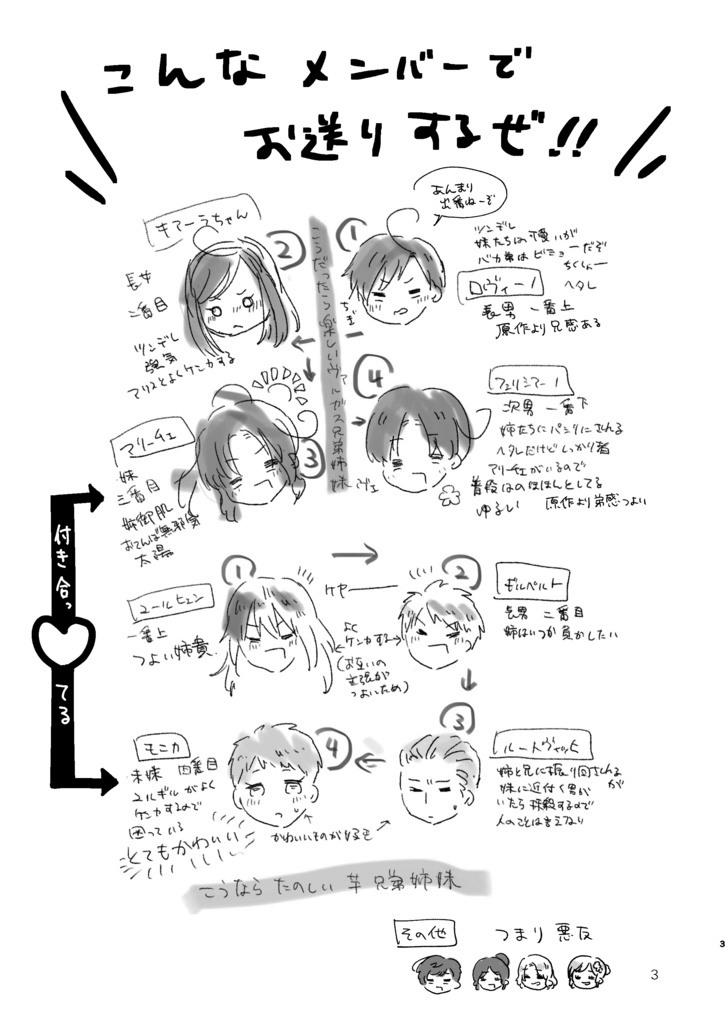 こんなメンバーで
お送りするぜ!!
あんまり
出番ねーぞ
①
ツンデレ
妹たちには優しいが
バカ弟はビミョーだぞ
ちくしょー
ロヴィーノ
ヘタレ
長男 一番上
原作より兄感ある
ちぎ
きてーラちゃん
②
長女
二番目
ツンデレ
強気
アリスとよくケンカする
こうだったら楽しいヴァルガス兄弟姉妹
④
フェリシアーノ
次男 一番下
姉たちにパシリにされる
ヘタレだけどしっかり者
アリーチェがいるので
普段はのほほんとしてる
ゆるしい 原作より弟感つよい
ヴェ
アリーチェ
③
妹
三番目
姉御肌
おてんば無邪気
太陽
付き合っ
てる
①
ユールヒェン
一番上
つよい姉貴
ケセ
よく
ケンカする
(お互いの
主張が
つよいため)
②
ギルベルト
長男 二番目
姉はいつか負かしたい
③
ルートヴィッヒ
姉と兄に振り回される
妹に近付く男が
いたら抹殺するので
人のことは言えない
④
モニカ
末妹 四番目
ユルギルがよく
ケンカするので
困っている
とてもかわいい
かわいいものが好き
こうなら たのしい 芋兄弟姉妹
その他
つまり 悪友
3
3